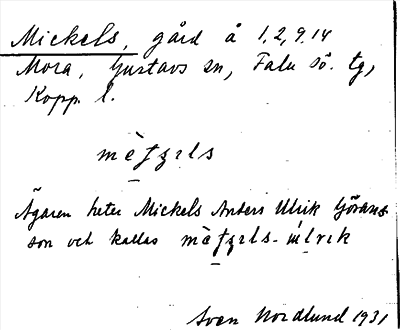 Mickels, gård å 1,2,9,14
Mora, Gustavs sn, Falu sö. tg,
Kopp. l.
Ägaren heter Mickels Anders Ulrik Görans-
son och kallas
Sven Nordlund 1931